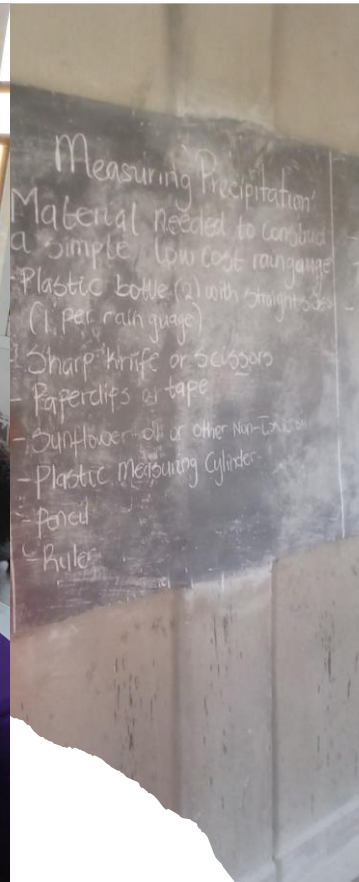 Measuring Precipitation
Material needed to construct
a simple, low cost raingauge
Plastic bottle (2) with straight sides
(1 per rain guage)
- Sharp knife or scissors
- Paperclips or tape
- Sunflower oil or other Non-
- Plastic Measuring Cylinder
- Pencil
- Ruler